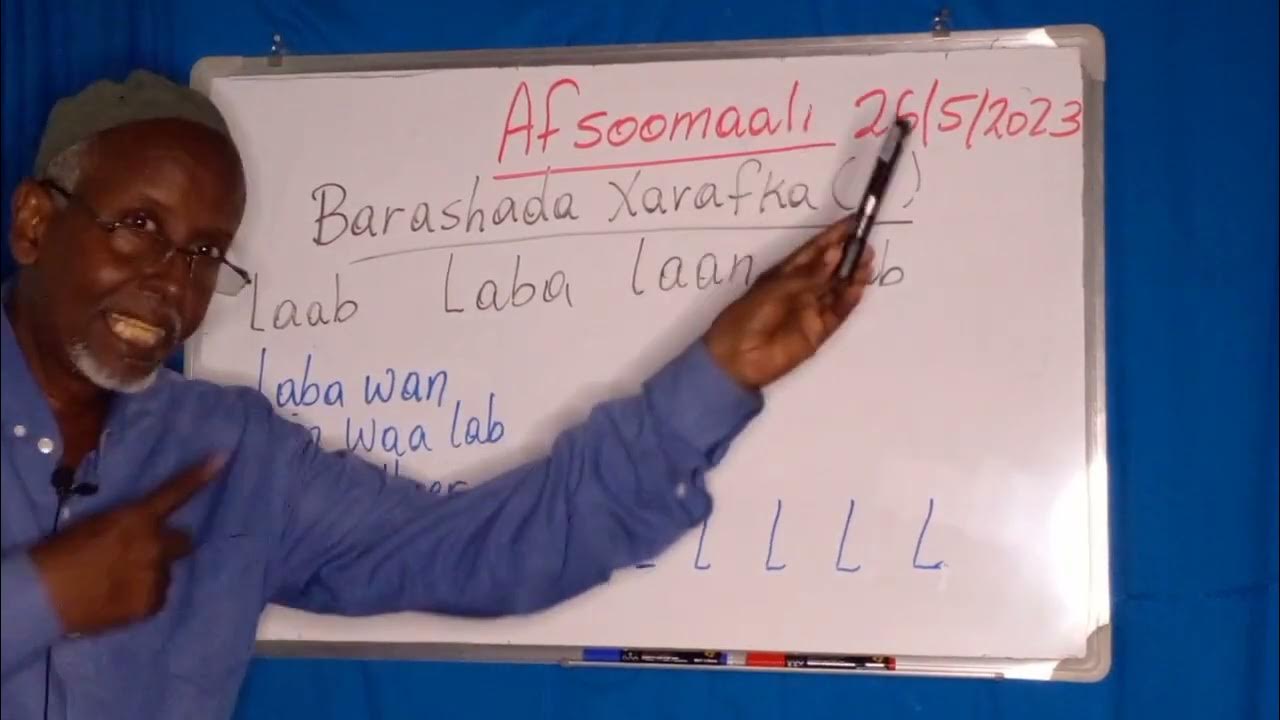 Afsoomaali 26/5/2023
Barashada Xarafka ( )
Laab Laba laan
Laba wan
Waa lab
L L L L